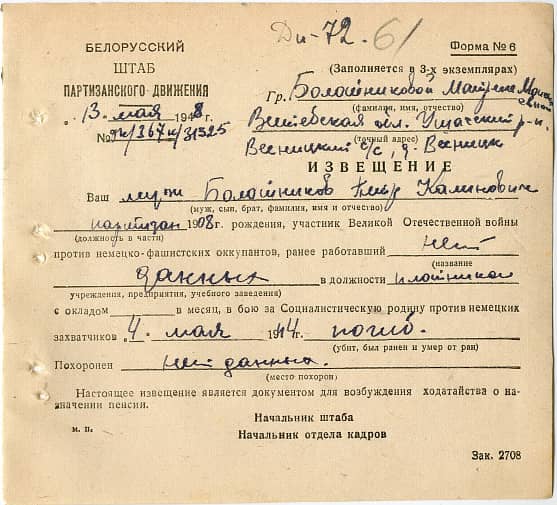 Ди-72. 61
БЕЛОРУССКИЙ
ШТАБ
ПАРТИЗАНСКОГО ДВИЖЕНИЯ
„13 мая 1948 г.
№
Форма № 6
(Заполняется в 3-х экземплярах)
Гр. Болотниковой
(фамилия, имя, отчество)
Витебская обл. Ушачский р-н.
(точный адрес)
Весницкий с/с, д. Весницк
ИЗВЕЩЕНИЕ
Ваш муж Болотников Петр Калинович
(муж, сын, брат, фамилия, имя и отчество)
партизан 1908 г. рождения, участник Великой Отечественной войны
(должность в части)
против немецко-фашистских оккупантов, ранее работавший нет
(название
данных в должности плотником
учреждения, предприятия, учебного заведения)
с окладом в месяц, в бою за Социалистическую родину против немецких
захватчиков „4. мая 1944 г. погиб.
(убит, был ранен и умер от ран)
Похоронен нет данных.
(место похорон)
Настоящее извещение является документом для возбуждения ходатайства о на-
значении пенсии.
Начальник штаба
м. п.
Начальник отдела кадров
Зак. 2708